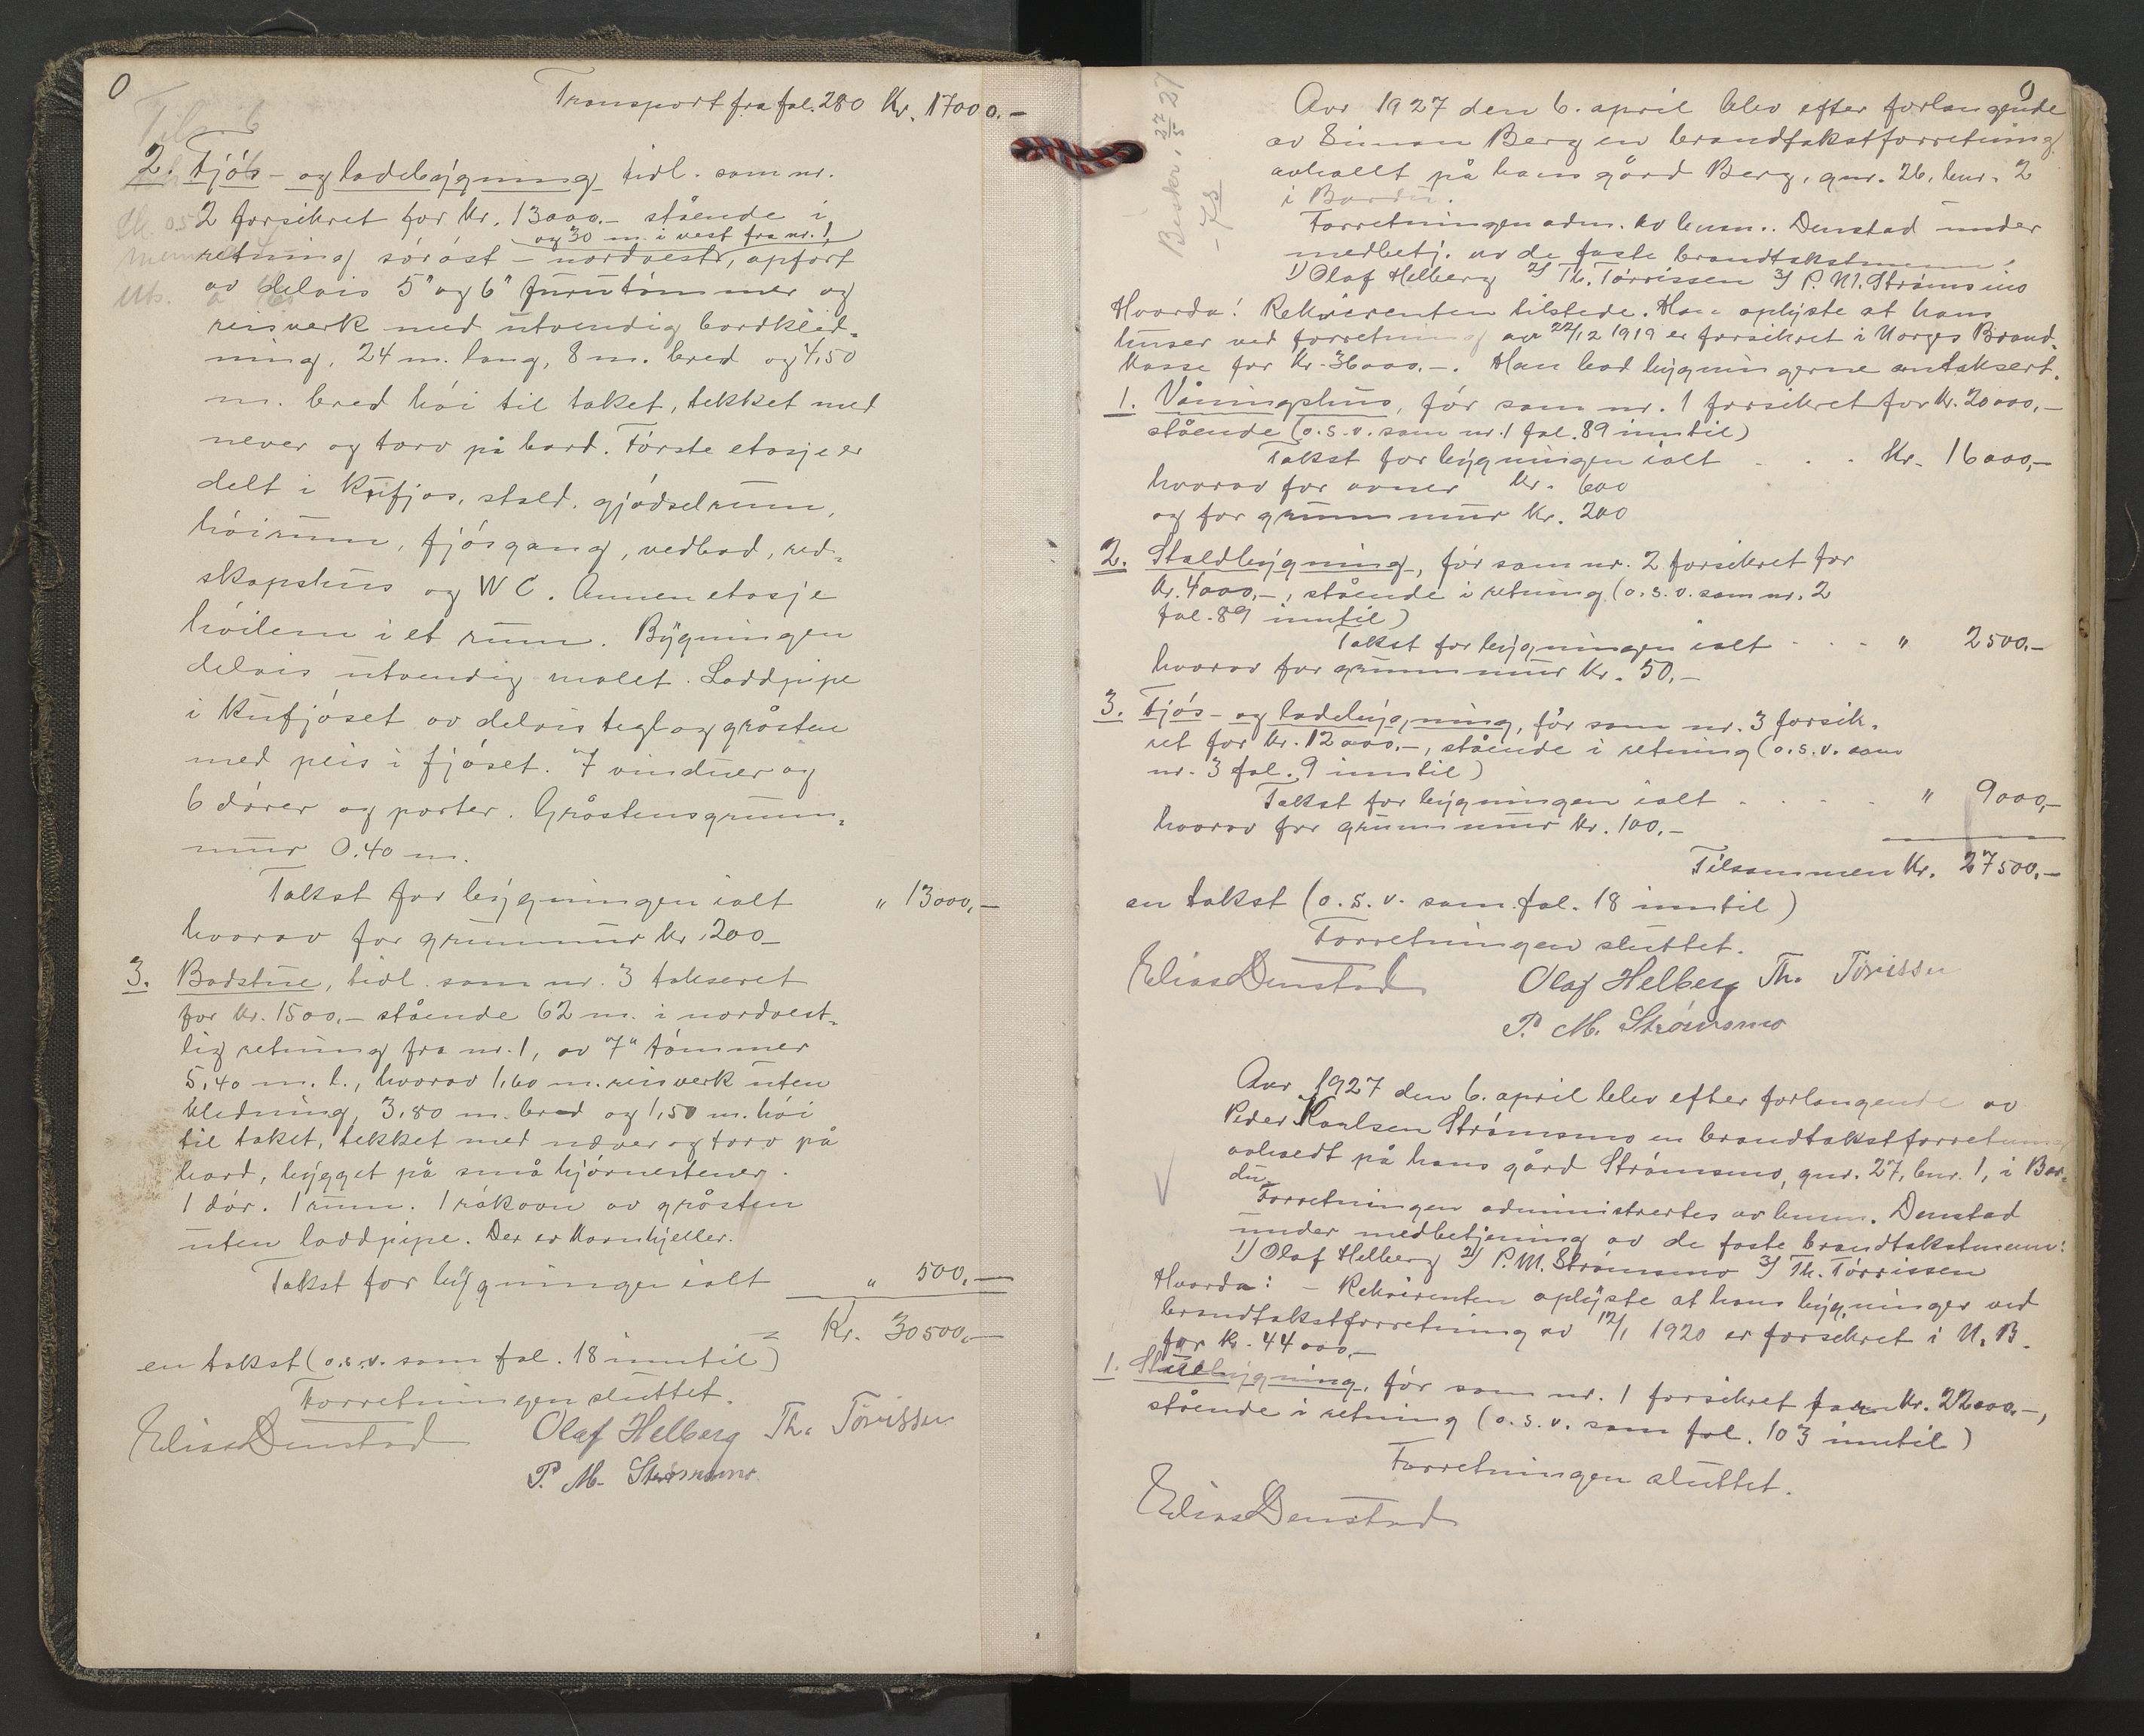 0
Transport fra fol. 280 Kr. 17000.-
2. Fjós- og ladebygning tidl. som nr.
2 forsikret for kr. 13000.- stående i
og 30 m. i vest fra nr. 1,
retning sóróst - nordvest, opfórt
av delvis 5" og 6" furutómmer og
reisverk med utvendig bordkled-
ning, 24 m. lang, 8 m. bred og 4,50
m. bred hói til taket, tekket med
never og torv på bord. Fórste etasje er
delt i kufjos, stald, gjódselrum,
hóirum, fjósgang, vedbod, red-
skapshus og WC. Annen etasje
hóilem i et rum. Bygningen
delvis utvendig malet. Loddpipe
i kufjóset av delvis tegl og gråsten
med peis i fjóset. 7 vinduer og
6 dórer og porter. Gråstensgrunn-
mur 0.40 m.
Takst for bygningen ialt " 13000,-
hvorav for grunnmur kr. 200-
3. Badstue, tidl. som nr. 3 takseret
for kr. 1500,- stående 62 m. i nordvest-
lig retning fra nr. 1, av 7" tómmer
5,40 m. l., hvorav 1,60 m. reisverk uten
kledning, 3,80 m. bred og 1,50 m. hói
til taket, tekket med næver og torv på
bord, bygget på små hjórnestener.
1 dór. 1 rum. 1 rókovn av gråsten
uten loddpipe. Der er kornhjeller.
Takst for bygningen ialt " 500,-
Kr. 30500,-
en takst (o.s.v. som fol. 18 inntil)
Forretningen sluttet.
Elias Denstad Olaf Helberg Th. Tórissen
P. M. Strømsmo
0
Besikr. 27/5 27
- 73
Aar 1927 den 6. april blev efter forlangende
av Simon Berg en brandtakstforretning
avholdt på hans gård Berg, gnr. 26, bnr. 2
i Bardu.
Forretningen adm. av lensm. Denstad under
medbetj. av de faste brandtakstmenn:
1) Olaf Helberg 2) Th. Tórrissen 3) P. M. Strómsmo
Hvorda: Rekvirenten tilstede. Han oplyste at hans
huser ved forretning av 22/12 1919 er forsikret i Norges Brand-
kasse for kr. 36000.-. Han bad bygningerne omtaksert.
1. Våningshus, fór som nr. 1 forsikret for kr. 20000,-
stående (o.s.v. som nr. 1 fol. 89 inntil)
Takst for bygningen ialt . . . Kr. 16000,-
hvorav for ovner kr. 600
og for grunnmur kr. 200
2. Staldbygning, fór som nr. 2 forsikret for
kr. 4000,-, stående i retning (o.s.v. som nr. 2
fol. 89 inntil)
Takst for bygningen ialt . . . " 2500.-
hvorav for grunnmur kr. 50,-
3. Fjós- og ladebygning, fór som nr. 3 forsik-
ret for kr. 12000.-, stående i retning (o.s.v. som
nr. 3 fol. 9 inntil)
Takst for bygningen ialt . . . . " 9000,-
hvorav for grunnmur kr. 100,-
Tilsammen kr. 27500,-
en takst (o.s.v. som fol. 18 inntil)
Forretningen sluttet.
Elias Denstad Olaf Helberg Th. Tórissen
P. M. Strómsmo
Aar 1927 den 6. april blev efter forlangende av
Peder Karlsen Strómsmo en brandtakstforretning
avholdt på hans gård Strómsmo, gnr. 27, bnr. 1, i Bar-
du.
Forretningen administrertes av lensm. Denstad
under medbetjening av de faste brandtakstmenn:
1) Olaf Helberg 2) P. M. Strómsmo 3) Th. Tórrissen
Hvorda: - Rekvirenten oplyste at hans bygninger ved
brandtakstforretning av 12/1 1920 er forsikret i N. B.
for kr. 44000,-
1. Stuebygning, fór som nr. 1 forsikret for kr. 22000.-,
stående i retning (o.s.v. som fol. 103 inntil)
Forretningen sluttet.
Elias Denstad